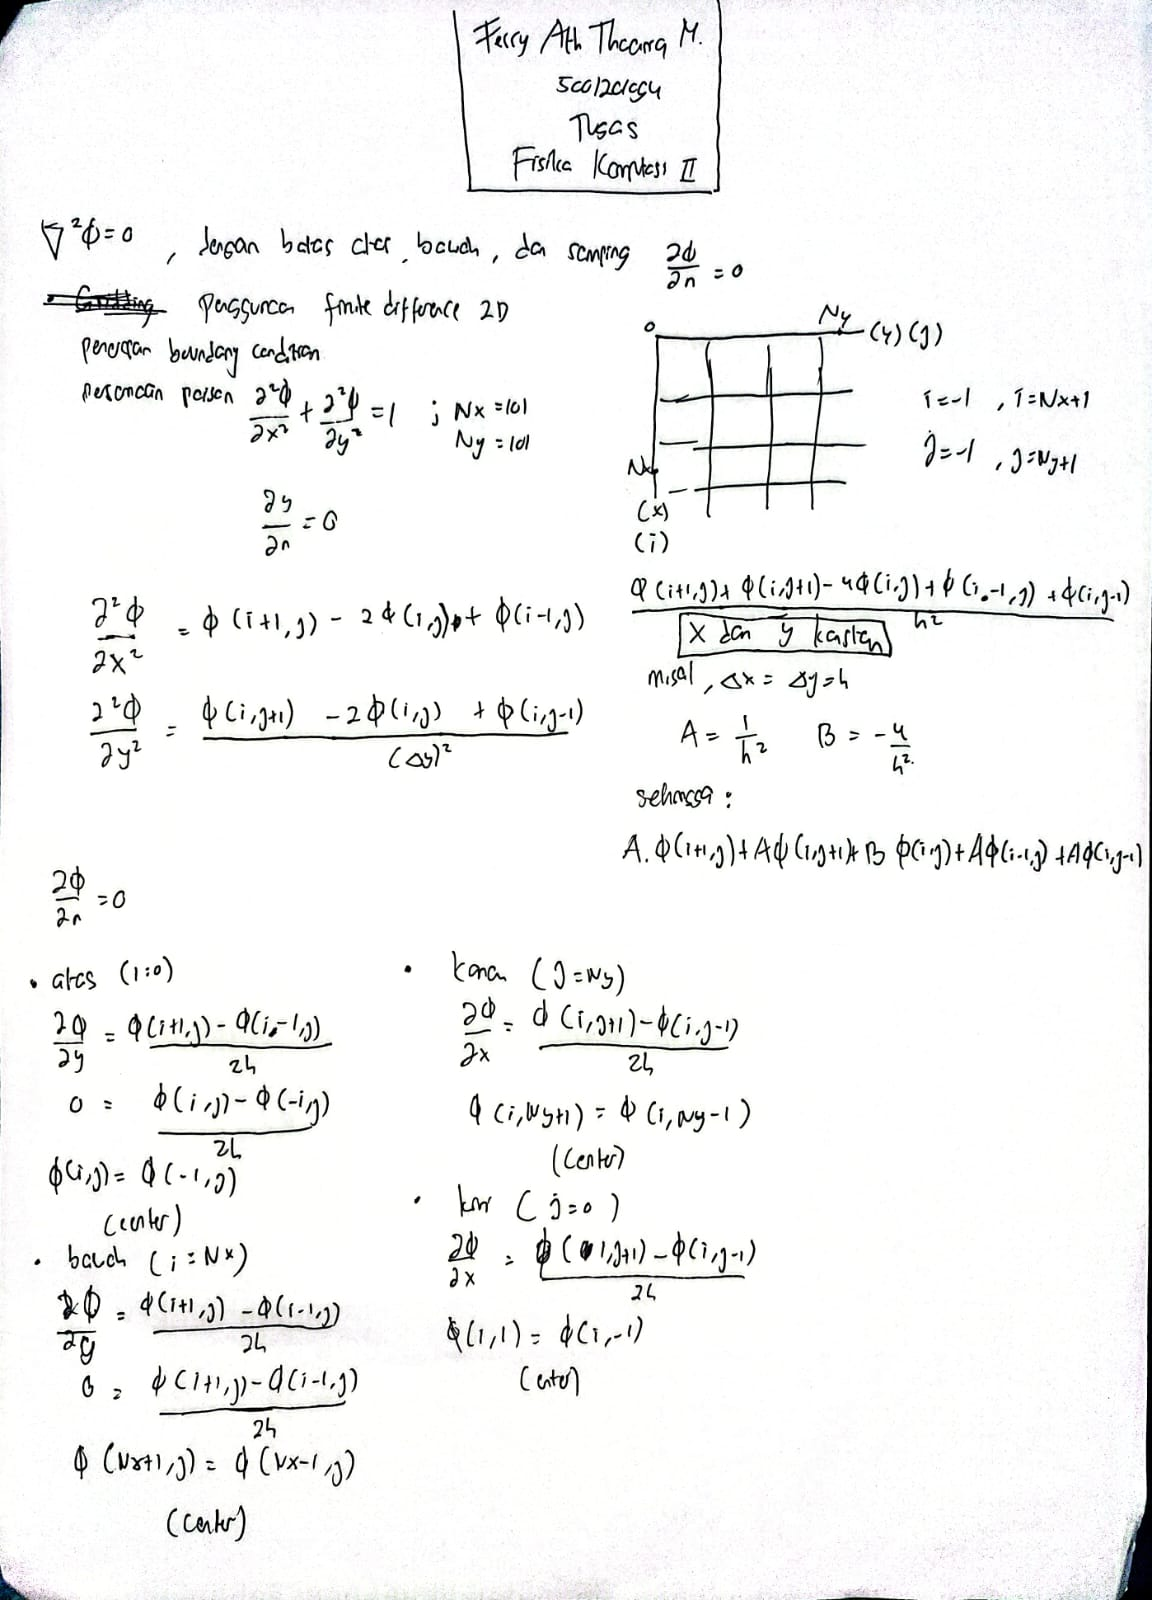 Ferry Ath Thaariq M.
Tugas
Fisika Komputasi II
∇²ϕ=0 , dengan batas atas, bawah, dan samping ∂ϕ/∂n = 0
penggunaan finite difference 2D
penerapan boundary condition
persamaan poison ∂²ϕ/∂x² + ∂²ϕ/∂y² = 1 ; Nx = 101
Ny = 101
∂y/∂n = 0
0 Ny (y) (j)
Nx
(x)
(i)
i=-1 , i=Nx+1
j=-1 , j=Ny+1
∂²ϕ/∂x² = ϕ(i+1,j) - 2ϕ(i,j) + ϕ(i-1,j)
∂²ϕ/∂y² = ϕ(i,j+1) - 2ϕ(i,j) + ϕ(i,j-1) / (Δy)²
ϕ(i+1,j) + ϕ(i,j+1) - 4ϕ(i,j) + ϕ(i-1,j) + ϕ(i,j-1) / h²
x dan y konstan
misal, Δx = Δy = h
A = 1/h² B = -4/h²
sehingga :
A.ϕ(i+1,j) + Aϕ(i,j+1) + B ϕ(i,j) + Aϕ(i-1,j) + Aϕ(i,j-1)
∂ϕ/∂n = 0
• atas (i=0)
∂ϕ/∂y = ϕ(i+1,j) - ϕ(i-1,j) / 2h
0 = ϕ(i,j) - ϕ(-i,j) / 2h
ϕ(i,j) = ϕ(-1,j)
(center)
• bawah (i = Nx)
∂ϕ/∂y = ϕ(i+1,j) - ϕ(i-1,j) / 2h
0 = ϕ(i+1,j) - ϕ(i-1,j) / 2h
ϕ(Nx+1,j) = ϕ(Nx-1,j)
(center)
• kanan (j=Ny)
∂ϕ/∂x = ϕ(i,j+1) - ϕ(i,j-1) / 2h
ϕ(i,Ny+1) = ϕ(i,Ny-1)
(center)
• kiri (j=0)
∂ϕ/∂x = ϕ(i,j+1) - ϕ(i,j-1) / 2h
ϕ(i,1) = ϕ(i,-1)
(center)